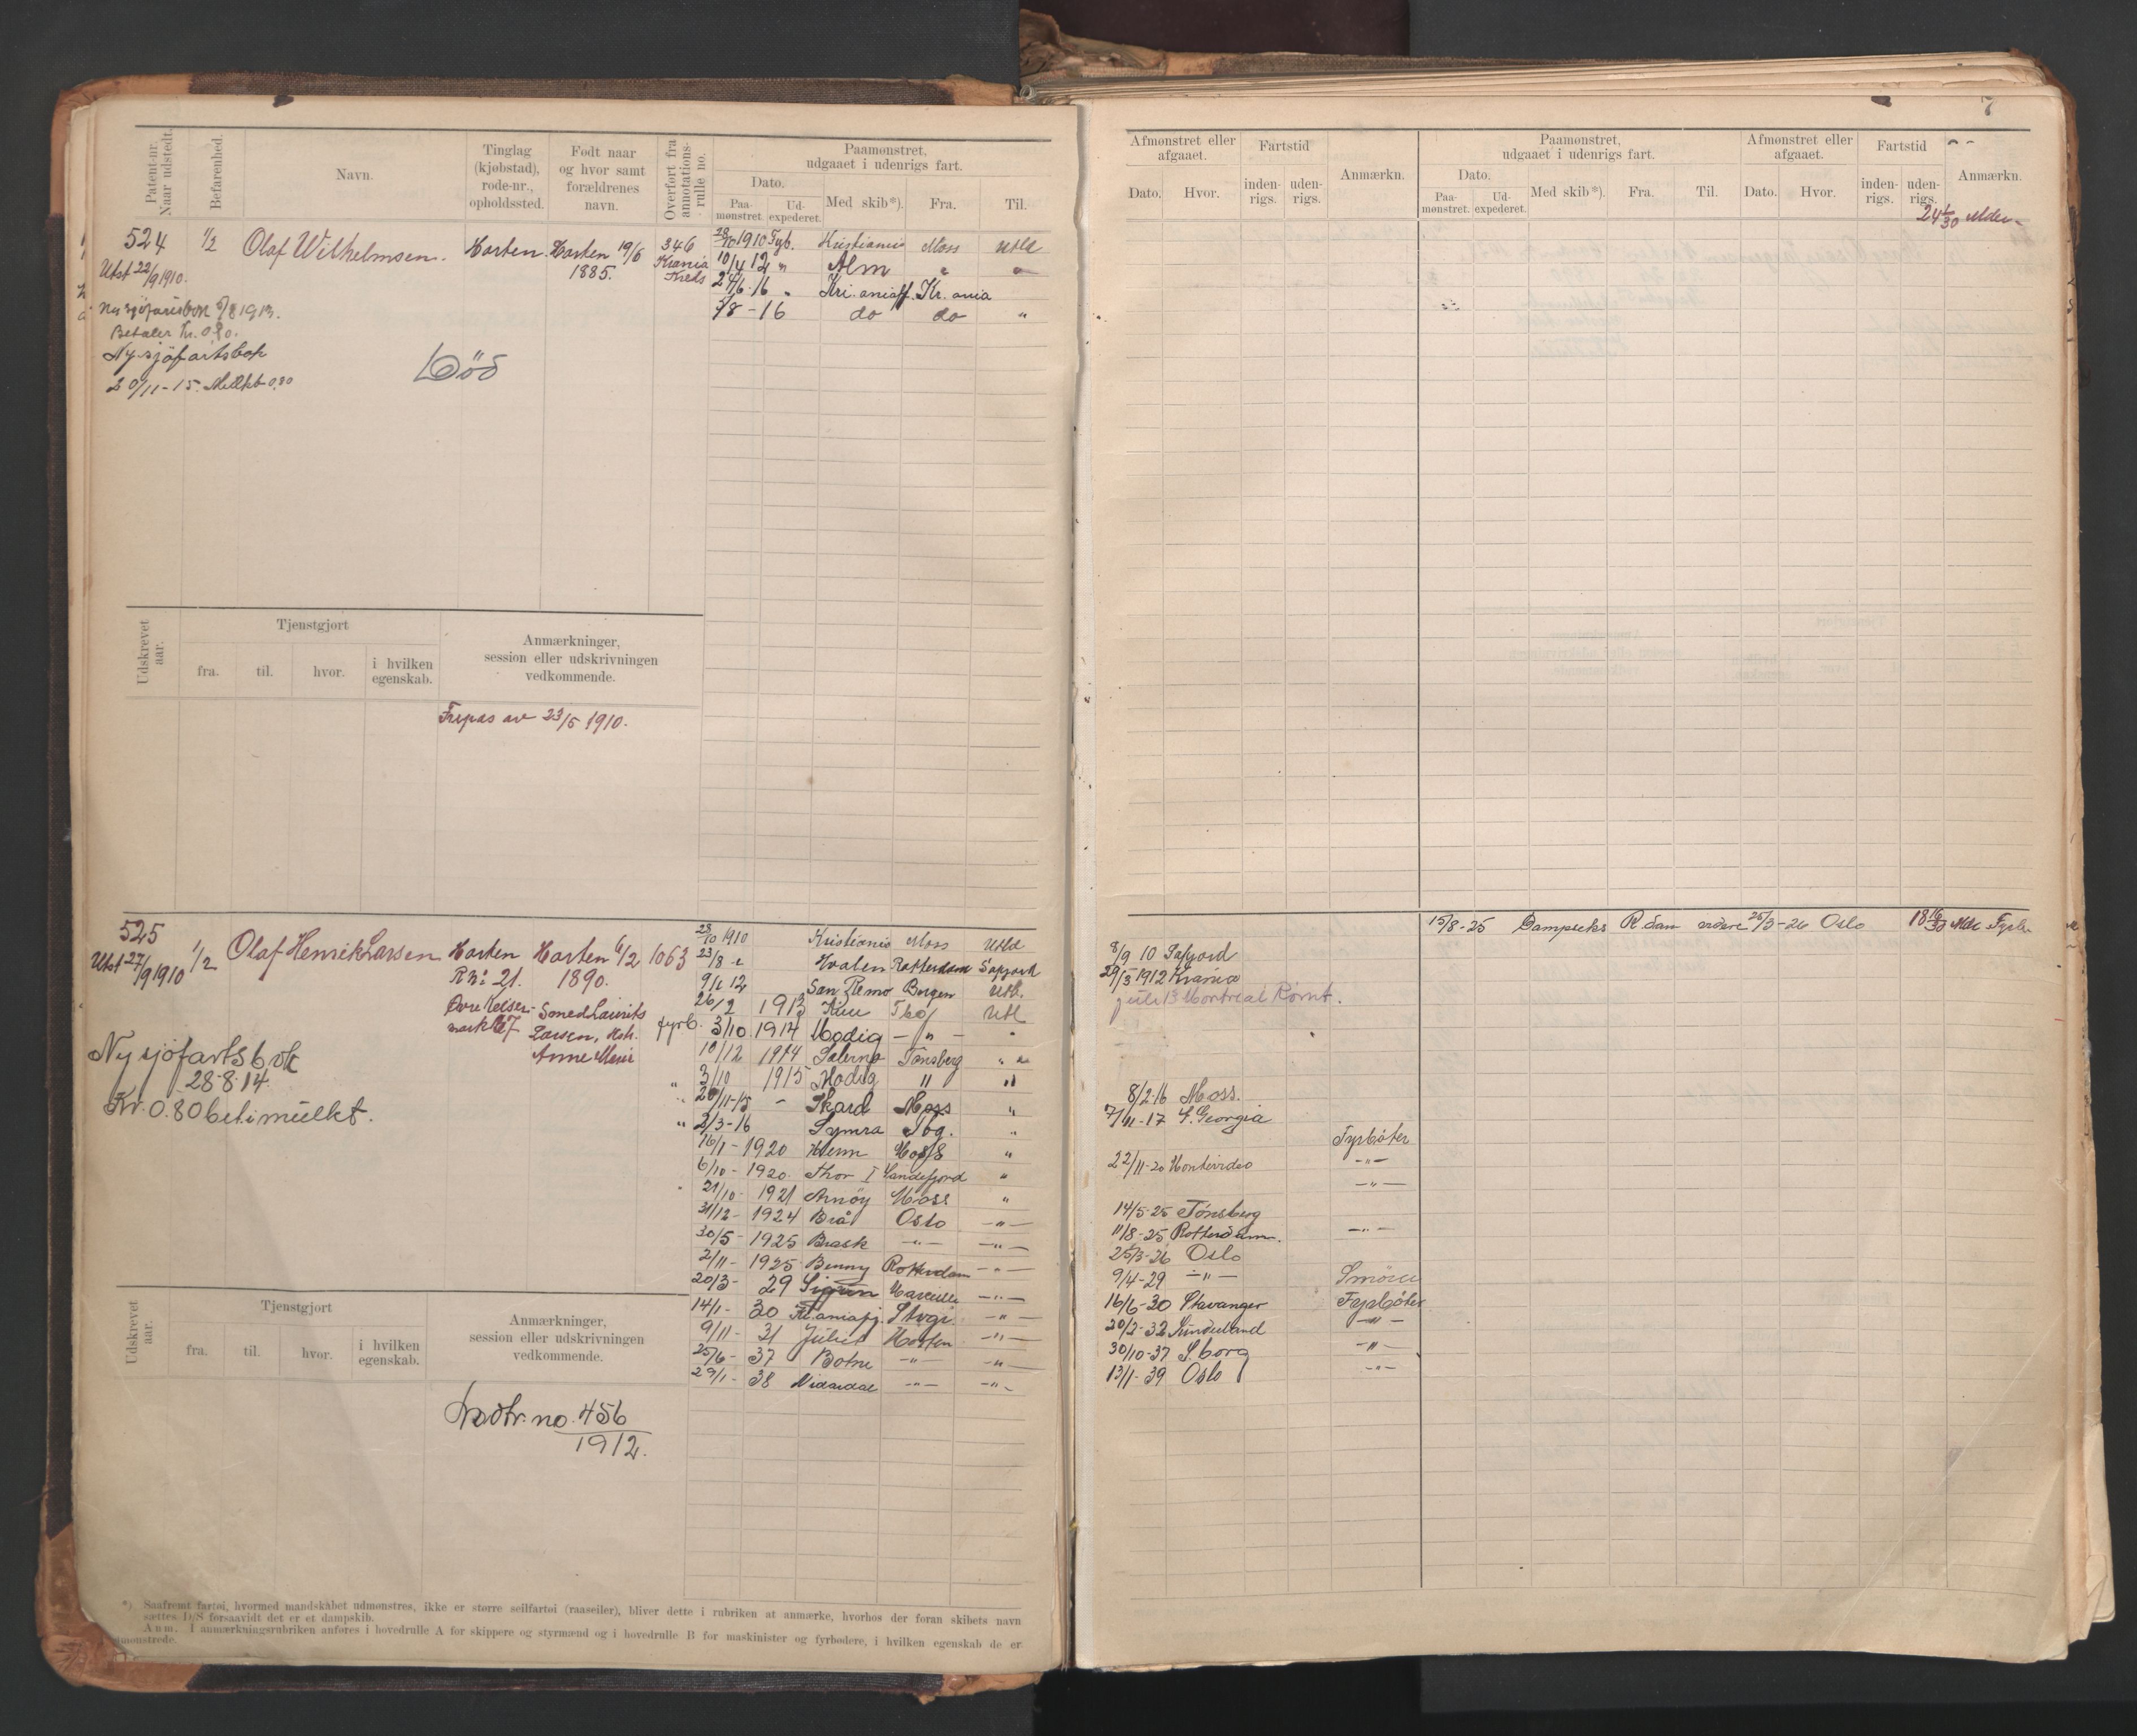 Patent-nr. Naar udstedt.
Befarenhed.
Navn.
Tinglag (kjøbstad), rode-nr., opholdssted.
Født naar og hvor samt forældrenes navn.
Overført fra annotations-rulle no.
Paamønstret, udgaaet i udenrigs fart.
Dato.
Paa-mønstret.
Ud-expederet.
Med skib*).
Fra.
Til.
524
1/2
Olaf Wilhelmsen.
Horten
Horten 19/6
1885.
346
Krania
Kreds
Utst 22/9 1910.
Ny sjøfartsbok
1913.
Betaler kr. 0,80.
Ny sjöfartsbok
20/11-15.
Död
28/10 1910 Fyb. Kristiania Moss Utld
10/4 12 " Alm " "
24/6-16 " Kr. ania
/8-16 do do "
Udskrevet aar.
Tjenstgjort
fra. til. hvor. i hvilken egenskab.
Anmærkninger, session eller udskrivningen vedkommende.
Fripas av 23/5 1910.
525
Utst 27/9 1910
1/2
Olaf Henrik Larsen
Horten
R No 21.
Horten 6/2
1890.
Larsen,
Anne
1063
Ny sjöfartsbok
28-8-14.
Kr. 0.80 bet. i
28/10 1910 Kristiania Moss Utld
23/8 Hvalen Rotterdam
9/1 12 San Remo Bergen Utl.
26/2 1913 Utl
fyrb. 3/10 1914 Modig - " - "
10/12 1914 Salerno Tønsberg "
" 3/10 1915 Modig " "
" 20/11-15 - Skard Moss "
" 2/3-16 Symra Tbg. "
16/1-1920 Moss "
6/10-1920 Thor I Sandefjord "
21/10-1921 Arnöy Moss "
31/12-1924 Brå Oslo - " -
30/5-1925 Brask - " - - " -
2/11-1925 Benny Rotterdam - " -
20/3-29 Sigrun - " -
14/1-30 Kr.aniafj. Stvgr. - " -
9/11-31 Juliet Horten - " -
25/6-37 Botne - " - - " -
29/1-38 Nidardal - " - - " -
Udskrevet aar.
Tjenstgjort
fra. til. hvor. i hvilken egenskab.
Anmærkninger, session eller udskrivningen vedkommende.
no. 456
1912.
*) Saafremt fartøi, hvormed mandskabet udmønstres, ikke er større seilfartøi (raaseiler), bliver dette i rubriken at anmærke, hvorhos der foran skibets navn
sættes D/S forsaavidt det er et dampskib.
Anm. I anmærkningsrubriken anføres i hovedrulle A for skippere og styrmænd og i hovedrulle B for maskinister og fyrbødere, i hvilken egenskab de er
mønstrede.
7
Afmønstret eller afgaaet.
Dato. Hvor.
Fartstid
inden-rigs. uden-rigs.
Anmærkn.
Paamønstret, udgaaet i udenrigs fart.
Dato.
Paa-mønstret. Ud-expederet.
Med skib*). Fra. Til.
Afmønstret eller afgaaet.
Dato. Hvor.
Fartstid
inden-rigs. uden-rigs.
Anmærkn.
15/8-25 R.dam 25/3-26 Oslo
8/9 10
29/3 1912 Krania
juli 13 Montreal Rømt.
8/2-16 Moss.
7/11-17 S. Georgia
Fyrböter
22/11-20 Montevideo - " -
- " -
14/5-25 Tönsberg
11/8-25 Rotterdam. - " -
25/3-26 Oslo
9/4-29 - " -
16/6-30 Stavanger Fyrböter
20/2-32 Sunderland - " -
30/10-37 S.borg - " -
13/1-39 Oslo - " -